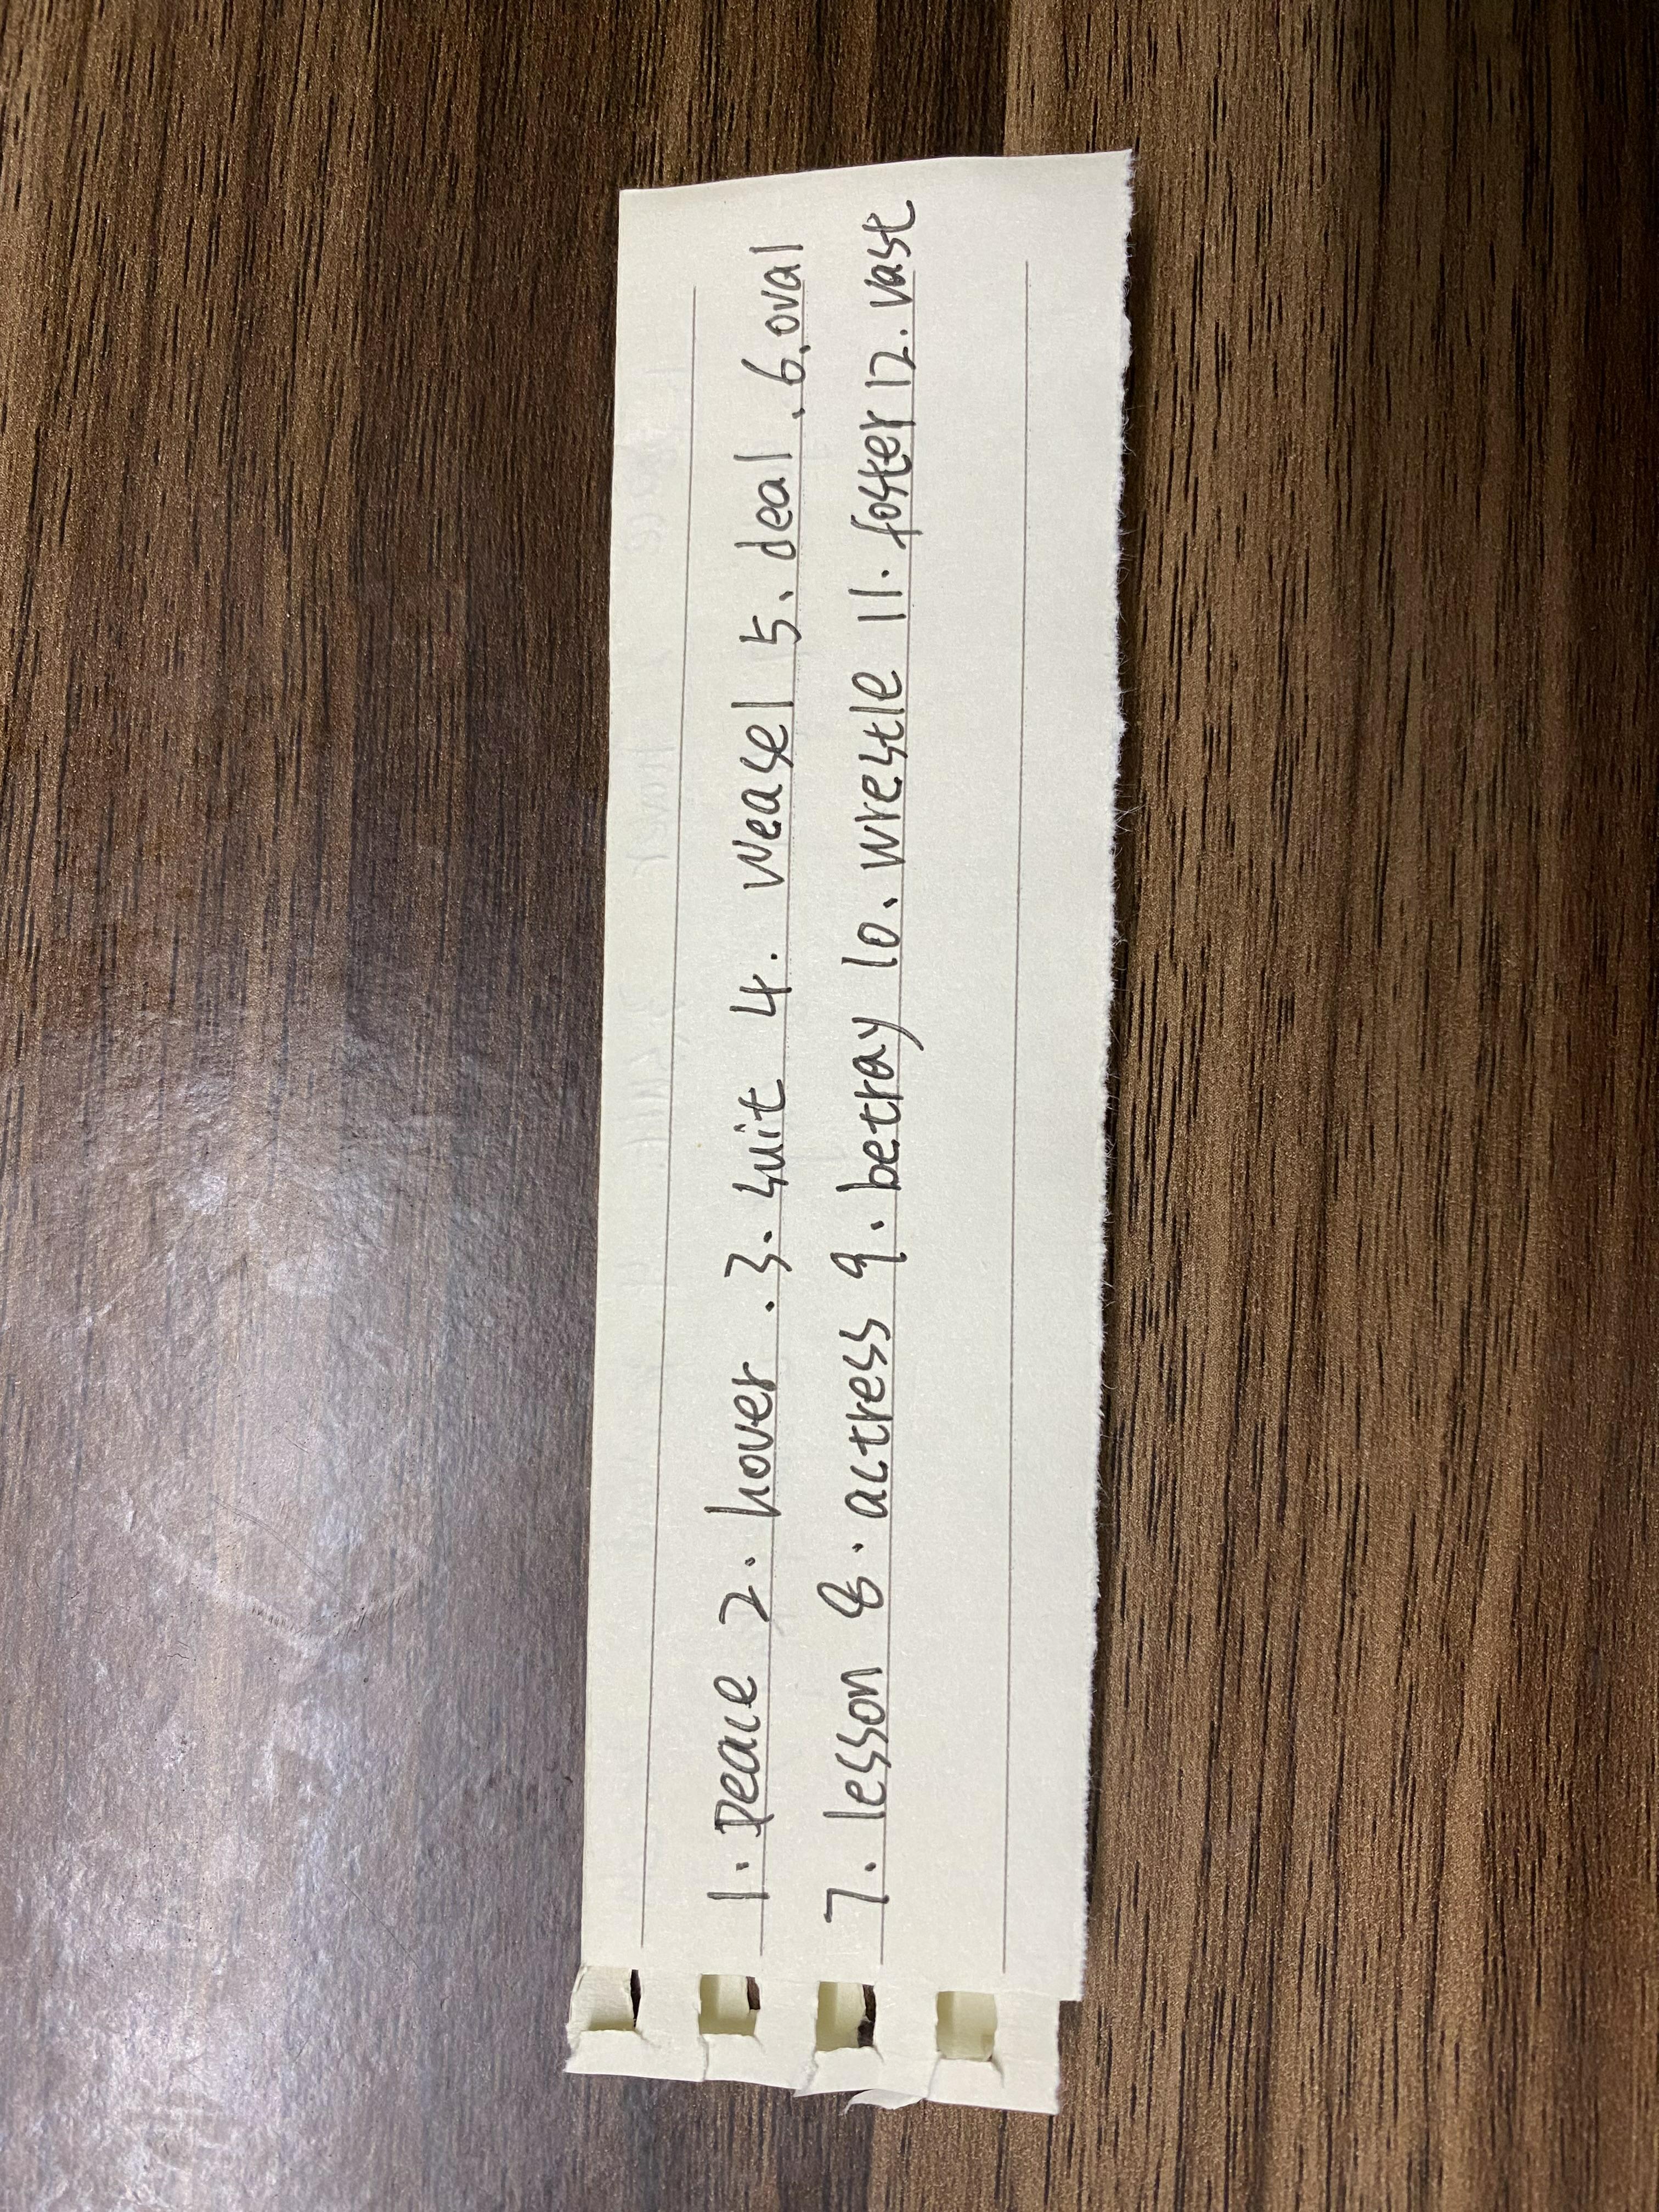 1. peace 2. hover . 3. suit 4. weasel 5. deal . 6. oval
7. lesson 8. actress 9. betray 10. wrestle 11. foster 12. vast